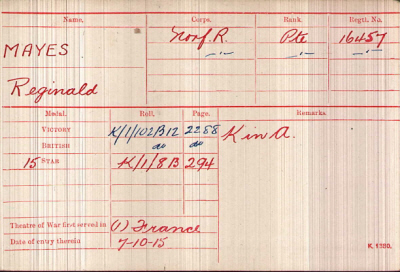 Name. Corps. Rank. Regtl. No.
MAYES Norf. R. Pte 16457
Reginald —"— —"— —"—
Medal. Roll. Page. Remarks.
VICTORY K/1/102B12 2288 K in A.
BRITISH do do
15 STAR K/1/8B 294
Theatre of War first served in (1) France
Date of entry therein 7-10-15
K. 1380.